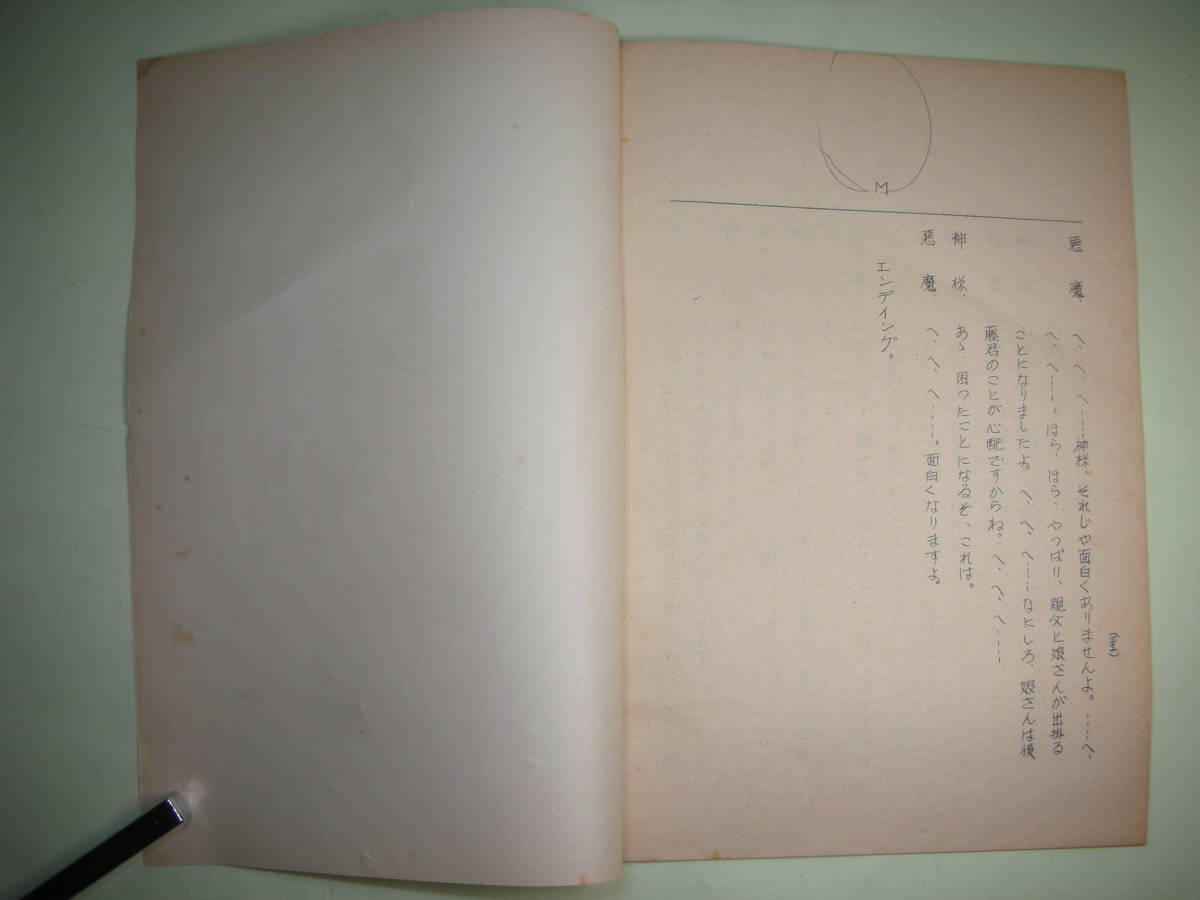 悪魔、へ、へ、へ----神様、それじや面白くありませんよ。----へ、
へ、へ----。ほら、ほら、やつぱり、親父と娘さんが出掛る
ことになりましたよ。へ、へ、へ----なにしろ、娘さんは後
藤君のことが心配ですからね。へ、へ、へ----
神様、あゝ、困つたことになるぞ、これは。
悪魔、へ、へ、へ----。面白くなりますよ。
エンデイング。
M